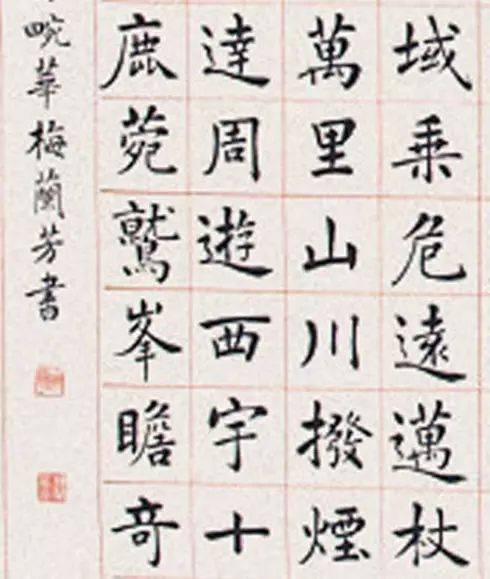 域乘危遠邁杖
萬里山川撥煙
達周遊西宇十
鹿菀鷲峯瞻奇
畹華梅蘭芳書